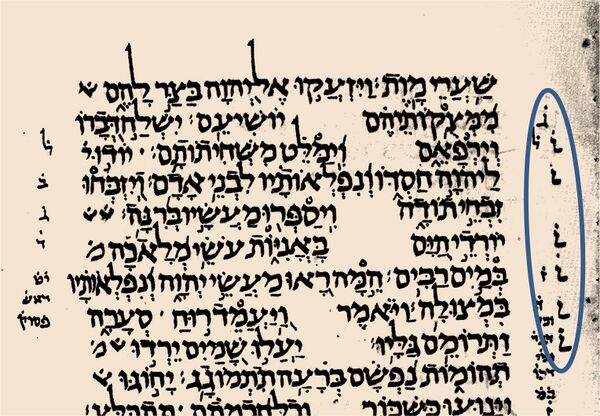 שַׁעֲרֵי מָוֶת׃ וַיִּזְעֲקוּ אֶל־יְהוָה בַּצַּר לָהֶם
מִמְּצֻקוֹתֵיהֶם יוֹשִׁיעֵם׃ יִשְׁלַח דְּבָרוֹ
וְיִרְפָּאֵם וִימַלֵּט מִשְּׁחִיתוֹתָם׃ יוֹדוּ
לַיהוָה חַסְדּוֹ וְנִפְלְאוֹתָיו לִבְנֵי אָדָם׃ וְיִזְבְּחוּ
זִבְחֵי תוֹדָה וִיסַפְּרוּ מַעֲשָׂיו בְּרִנָּה׃
יוֹרְדֵי הַיָּם בָּאֳנִיּוֹת עֹשֵׂי מְלָאכָה
בְּמַיִם רַבִּים׃ הֵמָּה רָאוּ מַעֲשֵׂי יְהוָה וְנִפְלְאוֹתָיו
בִּמְצוּלָה׃ וַיֹּאמֶר וַיַּעֲמֵד רוּחַ סְעָרָה
וַתְּרוֹמֵם גַּלָּיו׃ יַעֲלוּ שָׁמַיִם יֵרְדוּ
תְהוֹמוֹת נַפְשָׁם בְּרָעָה תִתְמוֹגָג׃ יָחוֹגּוּ
וְיָנוּעוּ כַּשִּׁכּוֹר וְכָל־חָכְמָתָם תִּתְבַּלָּע׃
ב
ג
ד
ראש